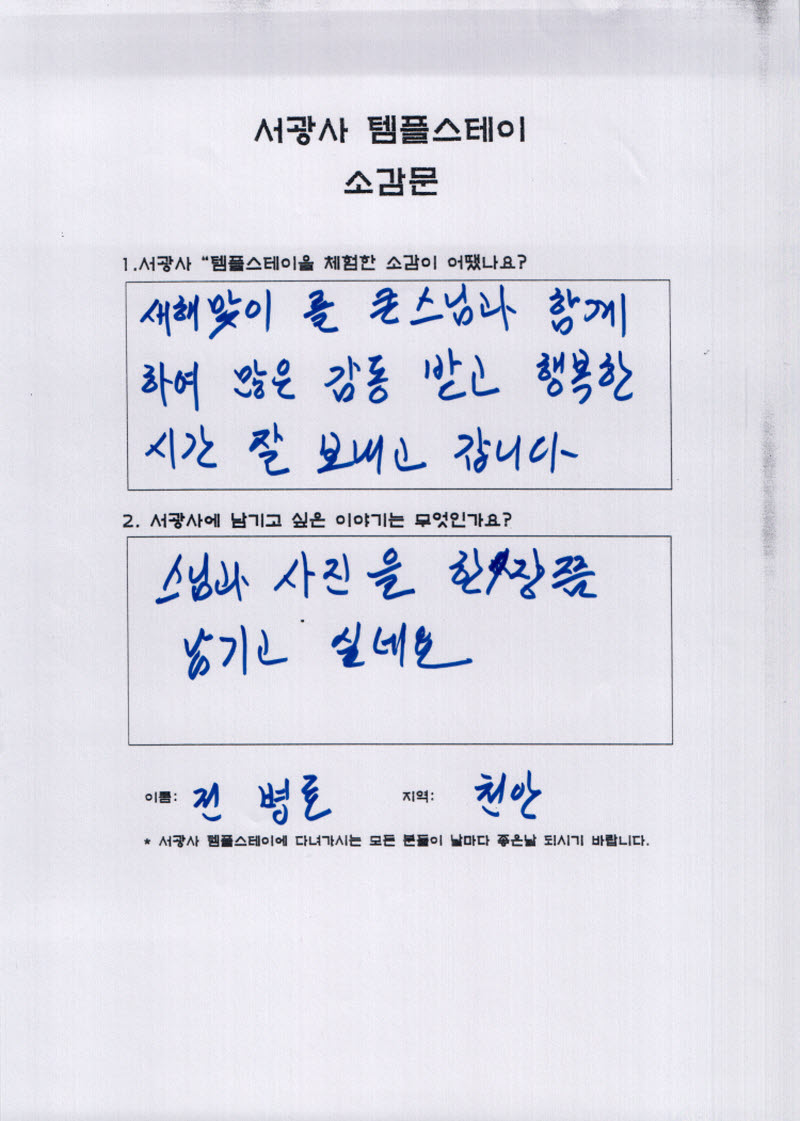 서광사 템플스테이
소감문
1.서광사 “템플스테이을 체험한 소감이 어땠나요?
새해맞이 를 큰스님과 함께
하여 많은 감동 받고 행복한
시간 잘 보내고 갑니다
2. 서광사에 남기고 싶은 이야기는 무엇인가요?
스님과 사진을 한장쯤
남기고 싶네요
이름: 전 병 지역: 천안
* 서광사 템플스테이에 다녀가시는 모든 분들이 날마다 좋은날 되시기 바랍니다.